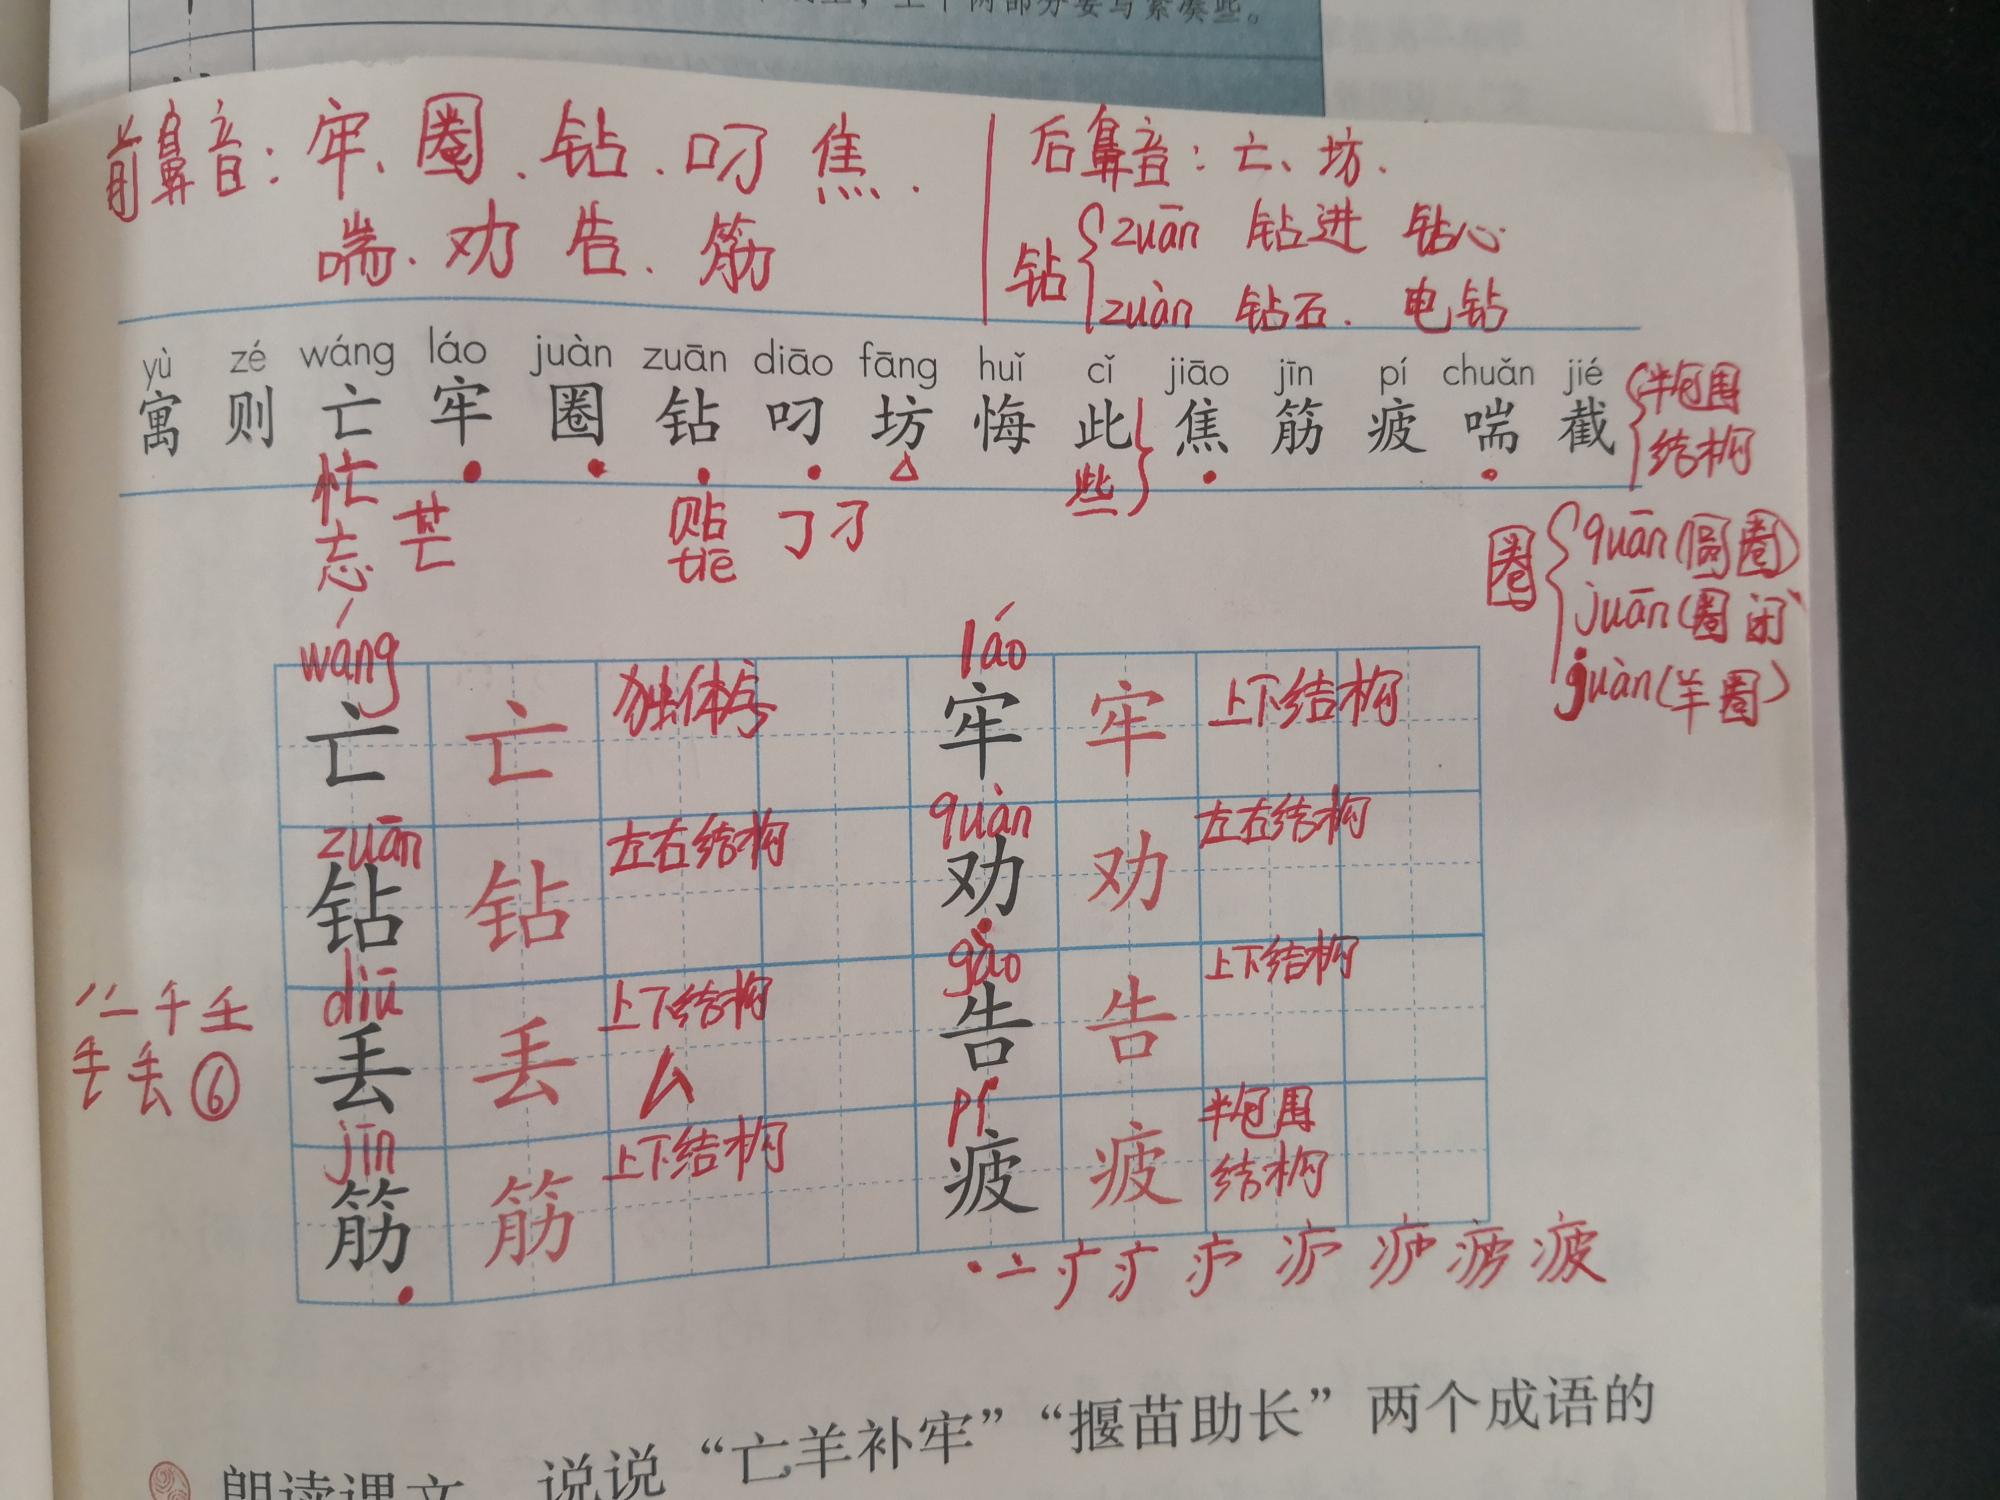 上下两部分要写紧凑些。
前鼻音：牢、圈．钻．叼 焦．
喘．劝 告．筋
后鼻音：亡、坊．
钻 zuān 钻进 钻心
zuàn 钻石． 电钻
yù zé wáng láo juàn zuān diāo fāng huǐ cǐ jiāo jīn pí chuǎn jié
寓 则 亡 牢 圈 钻 叼 坊 悔 此 焦 筋 疲 喘 截
半包围
结构
忙 些
忘 芒 贴 丁 刁
tiē
圈 quān（圆圈）
juān（圈闭
juàn（羊圈）
wáng láo
亡 亡 独体字 牢 牢 上下结构
zuān quàn
钻 钻 左右结构 劝 劝 左右结构
diū gào
丢 丢 上下结构 告 告 上下结构
厶
丿 二 千 壬
丢 ⑥
jīn pí
筋 筋 上下结构 疲 疲 半包围
结构
疲
朗读课文，说说“亡羊补牢”“揠苗助长”两个成语的